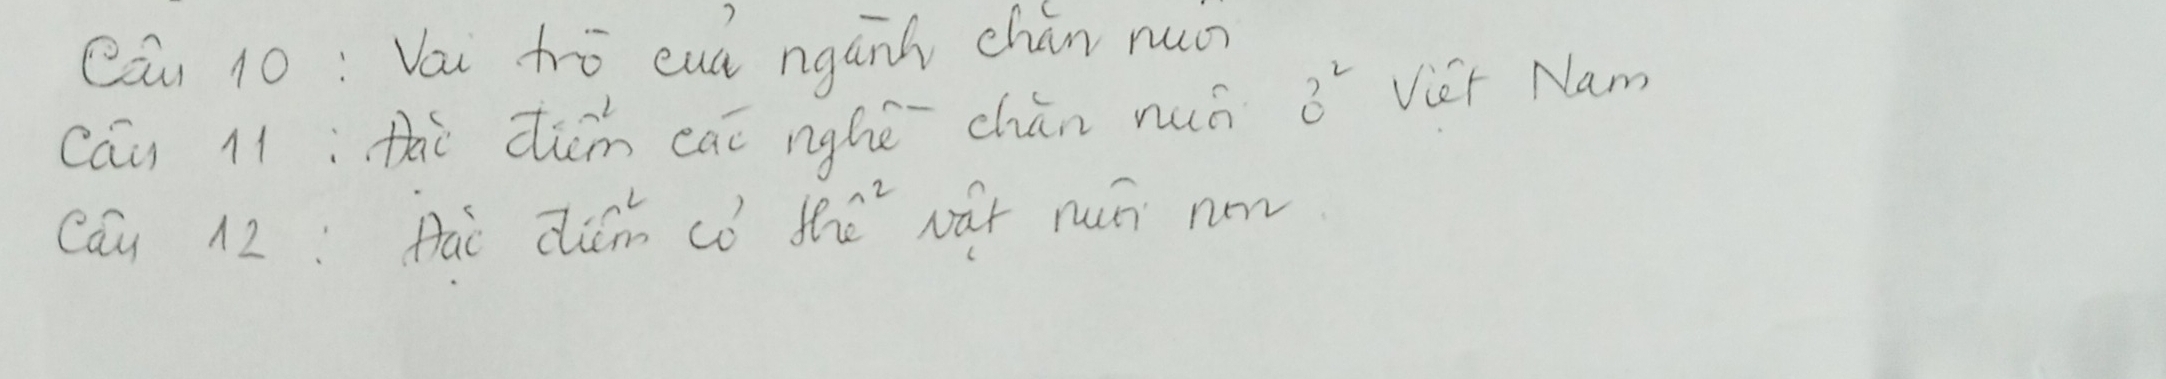 Câu 10 : Vai trò của ngành chăn nuôi
Câu 11 : Đặc điểm các nghề chăn nuôi ở Việt Nam
Câu 12 : Đặc điểm cơ thể vật nuôi non